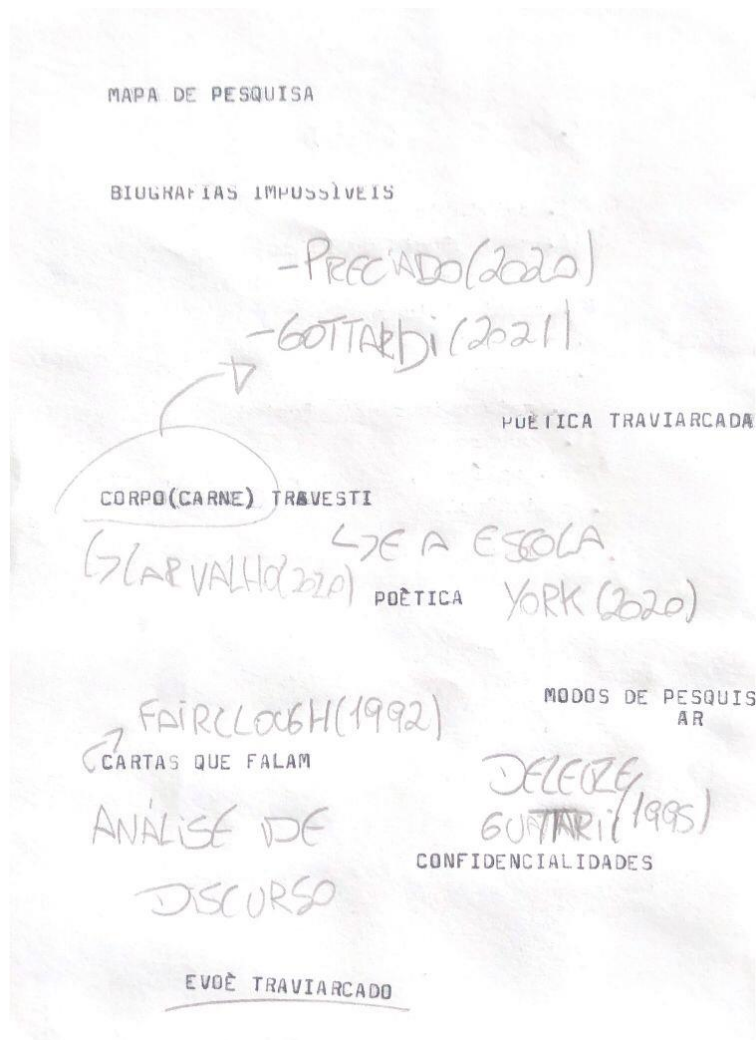 MAPA DE PESQUISA
BIOGRAFIAS IMPOSSÌVEIS
-PRECIADO(2020)
-GOTTARDi(2021)
POÈTICA TRAVIARCADA
CORPO(CARNE) TRAVESTI
↳E A ESCOLA
↳CARVALHO(2020)
POÈTICA YORK (2020)
MODOS DE PESQUIS
AR
FAIRCLOUGH(1992)
CARTAS QUE FALAM
DELEUZE,
GUATTARi(1995)
ANÁLISE DE
CONFIDENCIALIDADES
DISCURSO
EVOÈ TRAVIARCADO